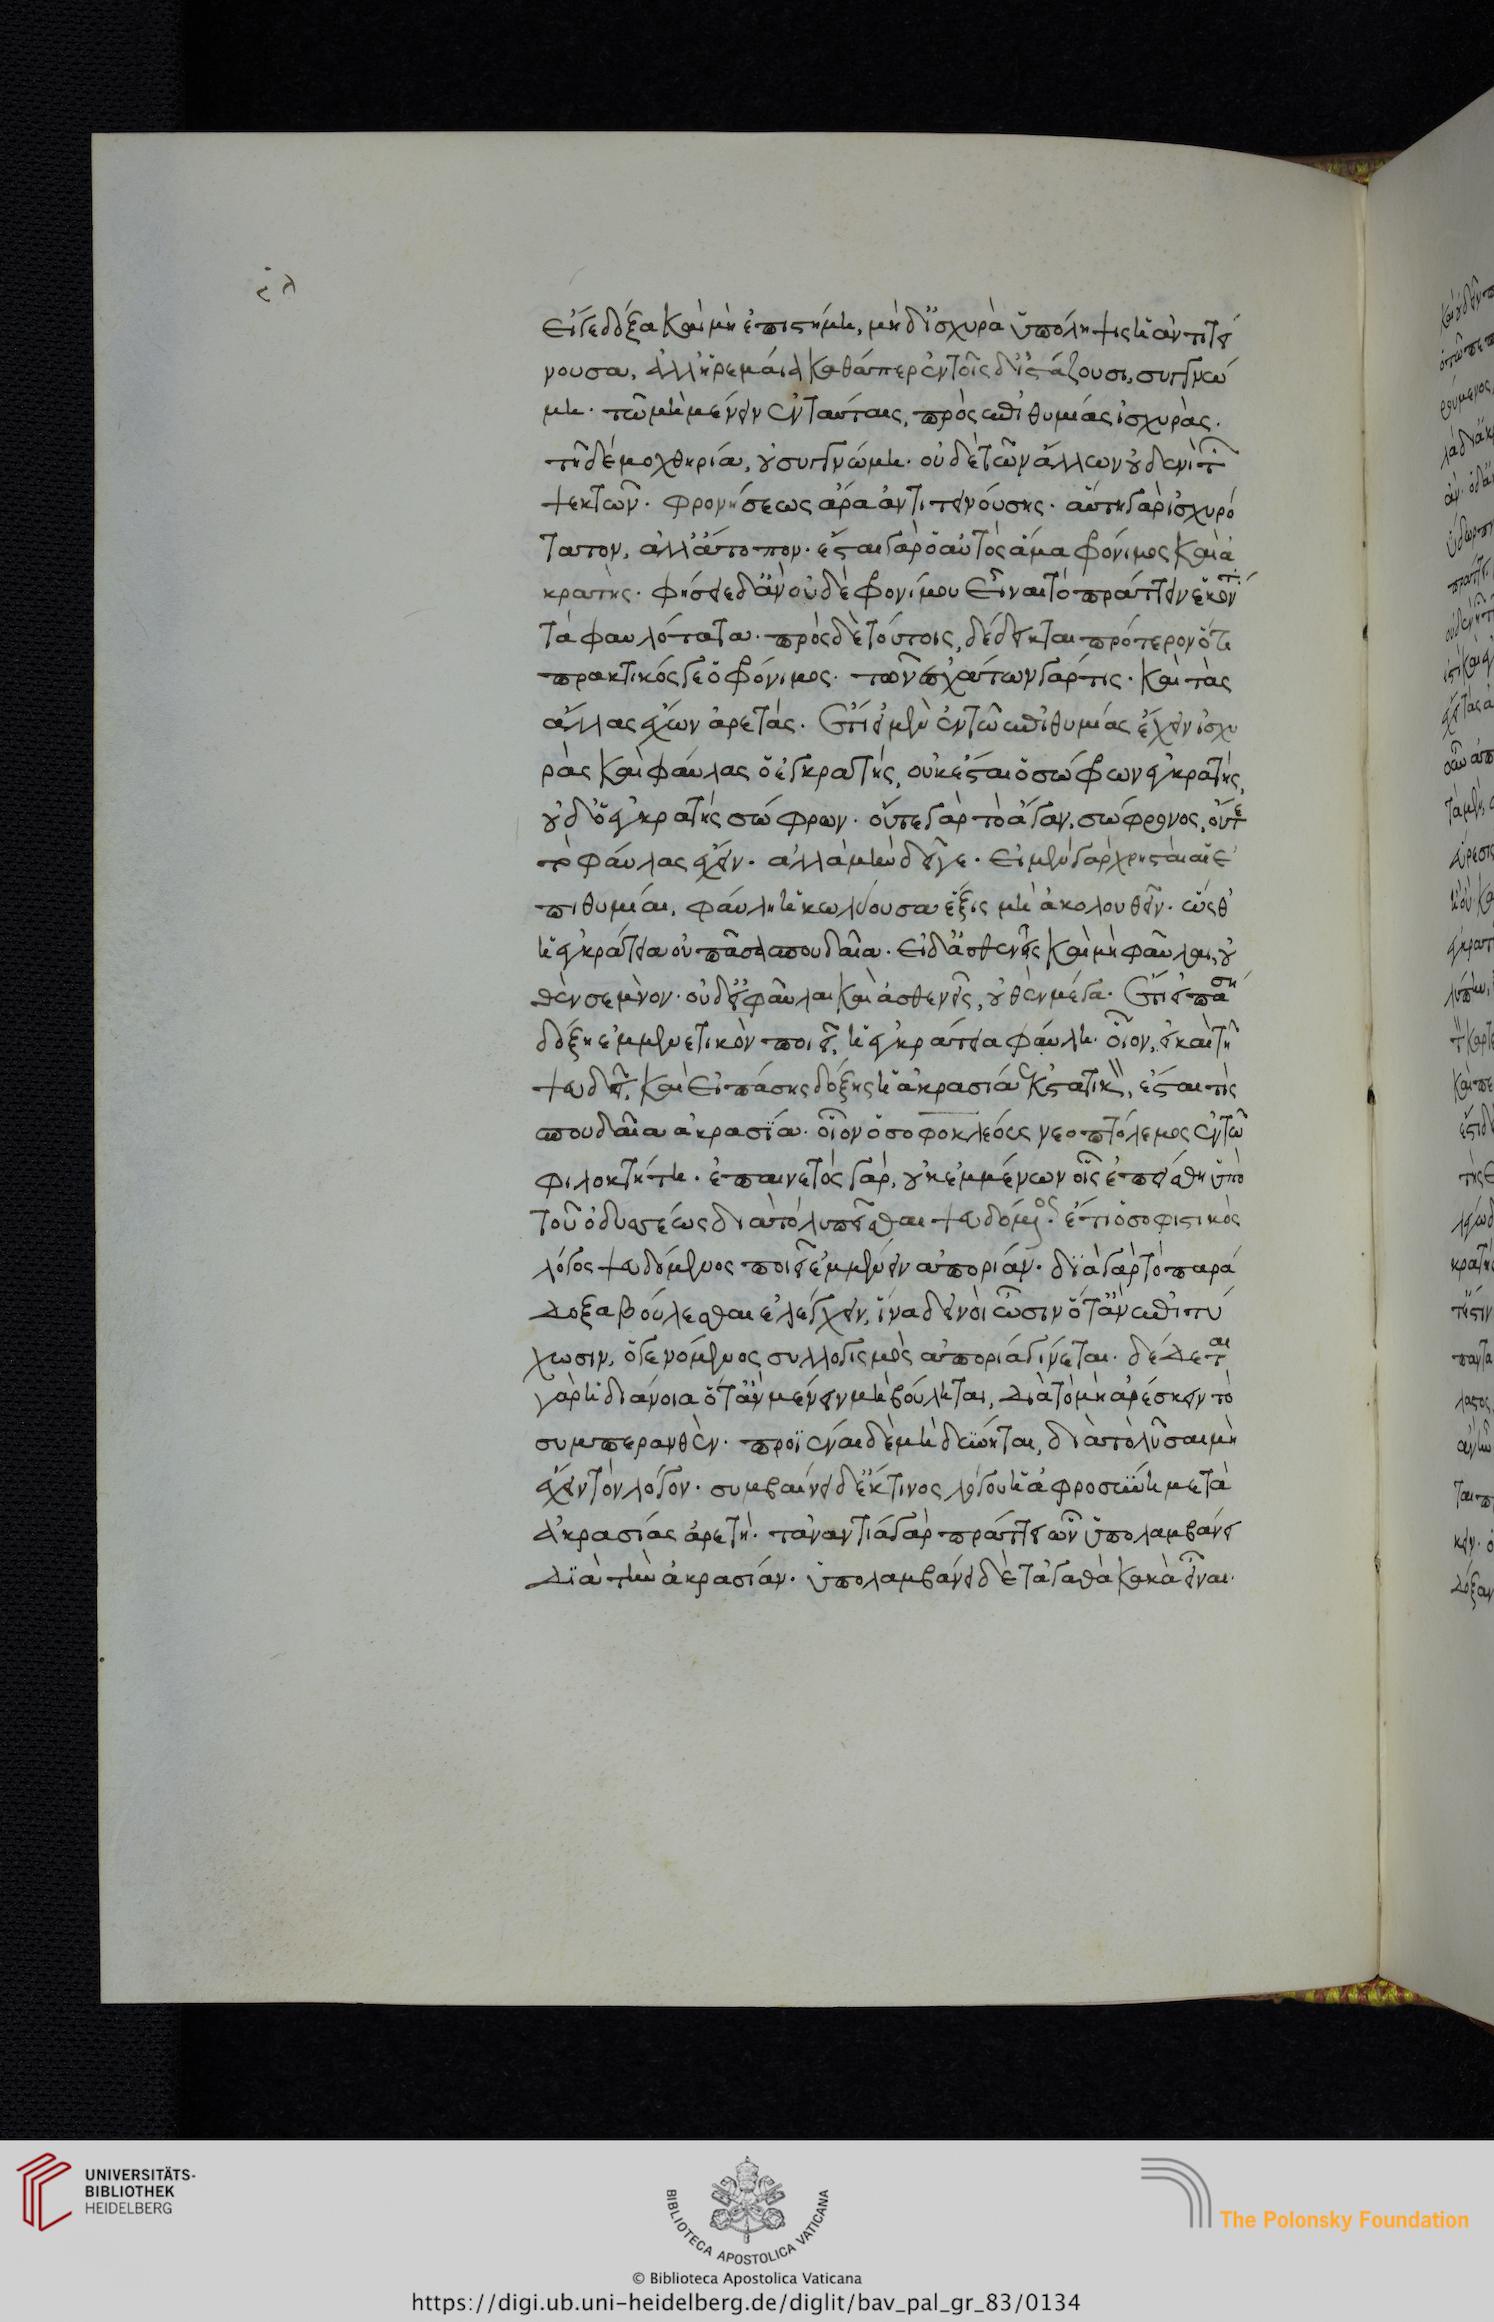 εἴγε δόξα καὶ μὴ ἐπιστήμη, μὴ δ' ἰσχυρὰ ὑπόληψις ἡ ἀντιτεί
νουσα, ἀλλ' ἠρεμαία καθάπερ ἐν τοῖς διστάζουσι, συγγνώ
μη. τῶ μὴ μένειν ἐν ταύταις, πρὸς ἐπιθυμίας ἰσχυράς.
τῆ δὲ μοχθηρία, οὐ συγγνώμη. οὐδὲ τῶν ἄλλων οὐδενὶ τῶν
ψεκτῶν. φρονήσεως ἄρα ἀντιτεινούσης. αὕτη γὰρ ἰσχυρό
τατον, ἀλλ' ἄτοπον. ἔσται γὰρ ὁ αὐτὸς ἅμα φρόνιμος καὶ ἀ
κρατής. φήσειε δ' ἂν οὐδὲ φρονίμου εἶναι τὸ πράττειν ἑκόντ
τὰ φαυλότατα. πρὸς δὲ τούτοις, δέδεικται πρότερον ὅτι
πρακτικός γε ὁ φρόνιμος. τῶν ἐσχάτων γάρ τις. καὶ τὰς
ἄλλας ἔχων ἀρετάς. ἔτι εἰ μὲν ἐν τῶ ἐπιθυμίας ἔχειν ἰσχυ
ρὰς καὶ φαύλας ὁ ἐγκρατής, οὐκ ἔσται ὁ σώφρων ἐγκρατής,
οὐδ' ὁ ἐγκρατής σώφρων. οὔτε γὰρ τὸ ἄγαν, σώφρονος, οὔτε
τὸ φαύλας ἔχειν. ἀλλὰ μὴν δεῖ γε. εἰ μὲν γὰρ χρησταὶ αἱ ἐ
πιθυμίαι, φαύλη ἡ κωλύουσα ἕξις μὴ ἀκολουθεῖν. ὥσθ'
ἡ ἐγκράτεια οὐ πᾶσα σπουδαῖα. εἰ δ' ἀσθενεῖς καὶ μὴ φαῦλαι, οὐ
θὲν σεμνὸν. οὐδ' εἰ φαῦλαι καὶ ἀσθενεῖς, οὐθὲν μέγα. ἔτι εἰ πάση
δόξη ἐμμενετικὸν ποιεῖ, ἡ ἐγκράτεια φαύλη. οἷον, εἰ καὶ τῆ
ψευδεῖ. καὶ εἰ πάσης δόξης ἡ ἀκρασία ἐκστατικὴ, ἔσται τὶς
σπουδαῖα ἀκρασία. οἷον ὁ σοφοκλέους νεοπτόλεμος ἐν τῶ
φιλοκτήτη. ἐπαινετὸς γάρ, οὐκ ἐμμένων οἷς ἐπείσθη ὑπὸ
τοῦ ὀδυσσέως διὰ τὸ λυπεῖσθαι ψευδόμενος. ἔτι ὁ σοφιστικὸς
λόγος ψευδόμενος ποιεῖ ἐμμένειν ἀπορίαν. διὰ γὰρ τὸ παρά
δοξα βούλεσθαι ἐλέγχειν, ἵνα δεινοὶ ὦσιν ὅτ' ἂν ἐπιτύ
χωσιν, ὁ γενόμενος συλλογισμὸς ἀπορία γίνεται. δέδεται
γὰρ ἡ διάνοια ὅτ' ἂν μένειν μὴ βούληται, διὰ τὸ μὴ ἀρέσκειν τὸ
συμπερανθὲν. προϊέναι δὲ μὴ δύνηται, διὰ τὸ λῦσαι μὴ
ἔχειν τὸν λόγον. συμβαίνει δ' ἔκ τινος λόγου ἡ ἀφροσύνη μετὰ
ἀκρασίας ἀρετή. τἀναντία γὰρ πράττει ὧν ὑπολαμβάνει
διὰ τὴν ἀκρασίαν. ὑπολαμβάνει δὲ τἀγαθὰ κακὰ εἶναι.
UNIVERSITÄTS-
BIBLIOTHEK
HEIDELBERG
BIBLIOTECA APOSTOLICA VATICANA
© Biblioteca Apostolica Vaticana
The Polonsky Foundation
https://digi.ub.uni-heidelberg.de/diglit/bav_pal_gr_83/0134